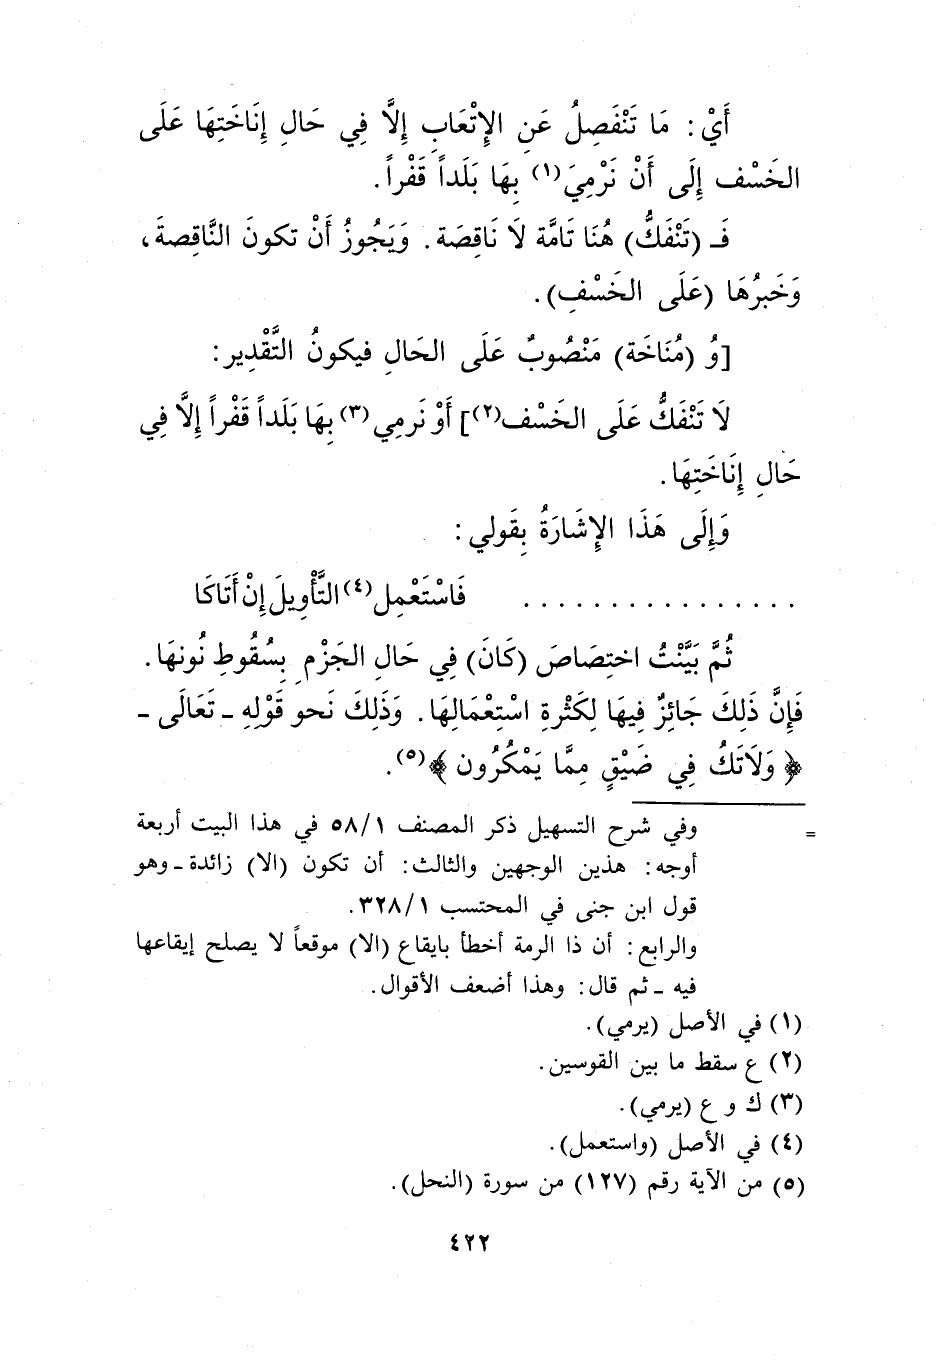 أَيْ: مَا تَنْفَصِلُ عَنِ الإِتْعَابِ إِلَّا فِي حَالِ إِنَاخَتِهَا عَلَى
الخَسْفِ إِلَى أَنْ نَرْمِيَ(١) بِهَا بَلَداً قَفْراً.
فَـ (تَنْفَكُّ) هُنَا تَامَّة لَا نَاقِصَة. وَيَجُوزُ أَنْ تكونَ النَّاقِصةَ،
وَخَبرُهَا (عَلَى الخَسْفِ).
[وُ (مُنَاخَة) مَنْصُوبٌ عَلَى الحَالِ فيكونُ التَّقْدِير:
لَا تَنْفَكُّ عَلَى الخَسْف(٢)] أَوْ نَرمِي(٣) بِهَا بَلَداً قَفْراً إِلَّا فِي
حَالِ إِنَاخَتِهَا.
وَإِلَى هَذَا الإِشَارَةُ بِقَولي:
................ فَاسْتَعْمِل(٤) التَّأْوِيلَ إِنْ أَتَاكَا
ثُمَّ بَيَّنْتُ اختِصَاصَ (كَانَ) فِي حَالِ الجَزْمِ بِسُقُوطِ نُونهَا.
فَإِنَّ ذَلِكَ جَائِزٌ فِيهَا لِكَثْرةِ اسْتِعْمَالِهَا. وَذَلِكَ نَحو قَوْلِهِ ـ تَعَالَى ـ
﴿وَلَاتَكُ فِي ضَيْقٍ مِمَّا يَمْكُرُون﴾(٥).
= وفي شرح التسهيل ذكر المصنف ٥٨/١ في هذا البيت أربعة
أوجه: هذين الوجهين والثالث: أن تكون (الا) زائدة ـ وهو
قول ابن جنى في المحتسب ٣٢٨/١.
والرابع: أن ذا الرمة أخطأ بايقاع (الا) موقعاً لا يصلح إيقاعها
فيه ـ ثم قال: وهذا أضعف الأقوال.
(١) في الأصل (يرمي).
(٢) ع سقط ما بين القوسين.
(٣) ك و ع (يرمي).
(٤) في الأصل (واستعمل).
(٥) من الآية رقم (١٢٧) من سورة (النحل).
٤٢٢